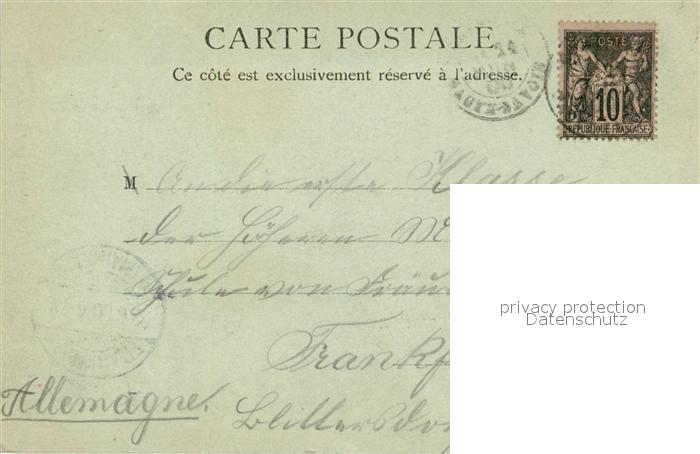 CARTE POSTALE
Ce côté est exclusivement réservé à l'adresse.
POSTE
10
REPUBLIQUE FRANÇAISE
M An die erste Klasse
der höheren M
Schule von Fräu
Frankf
Allemagne.
Blittersdo
privacy protection
Datenschutz